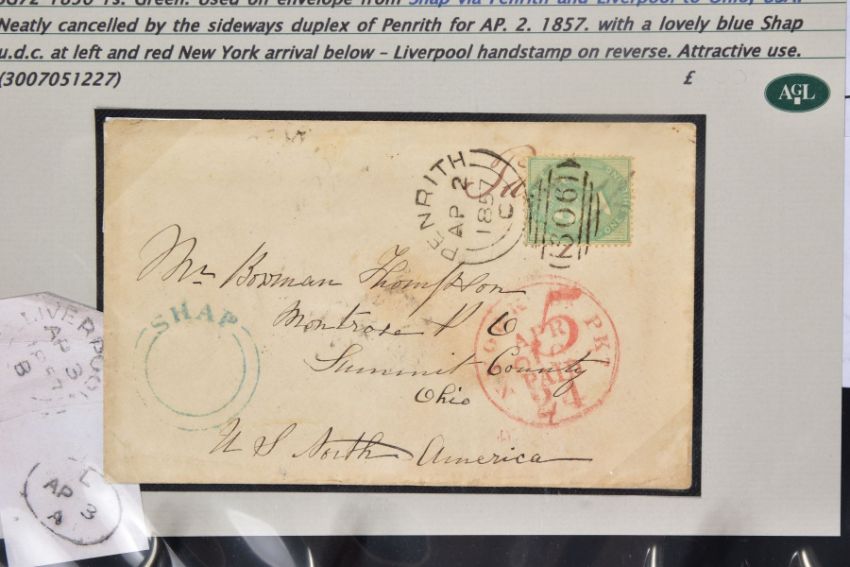 SG72 1856 1s. Green. Used on envelope from Shap via Penrith and Liverpool to Ohio, USA.
Neatly cancelled by the sideways duplex of Penrith for AP. 2. 1857. with a lovely blue Shap
u.d.c. at left and red New York arrival below – Liverpool handstamp on reverse. Attractive use.
(3007051227) £
AGL
PENRITH
AP 2
1857
C
Mr Bowman Thompson
Montrose P O
Summit County
Ohio
U S North America
SHAP
5
APR
PAID
24
PKT
LIVERPOOL
AP 3
57
B
L
AP 3
A